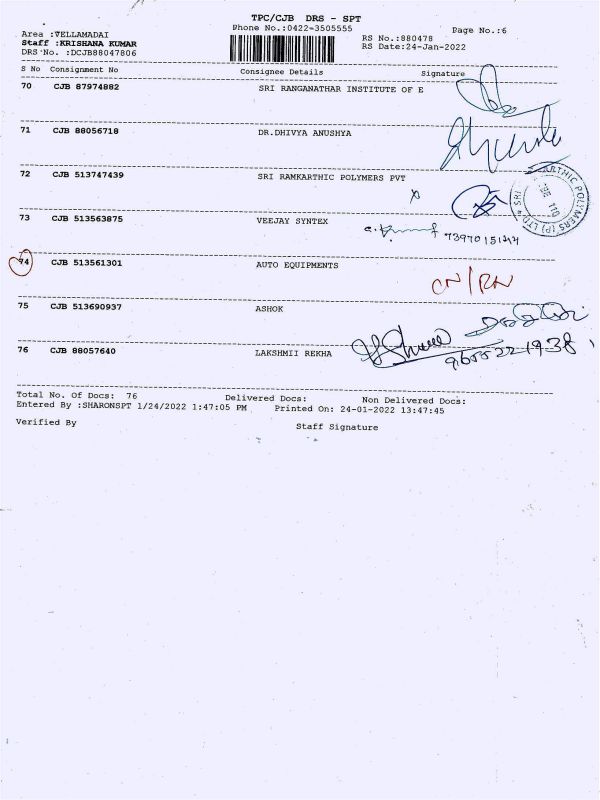 TPC/CJB DRS - SPT
Phone No.:0422-3505555
Page No.:6
Area :VELLAMADAI
Staff :KRISHANA KUMAR
DRS No. :DCJB88047806
RS No.:880478
RS Date:24-Jan-2022
S No Consignment No Consignee Details Signature
70 CJB 87974882 SRI RANGANATHAR INSTITUTE OF E
71 CJB 88056718 DR.DHIVYA ANUSHYA
72 CJB 513747439 SRI RAMKARTHIC POLYMERS PVT
73 CJB 513563875 VEEJAY SYNTEX
74 CJB 513561301 AUTO EQUIPMENTS
CN/RN
75 CJB 513690937 ASHOK
76 CJB 88057640 LAKSHMII REKHA
Total No. Of Docs: 76 Delivered Docs: Non Delivered Docs:
Entered By :SHARONSPT 1/24/2022 1:47:05 PM Printed On: 24-01-2022 13:47:45
Verified By Staff Signature